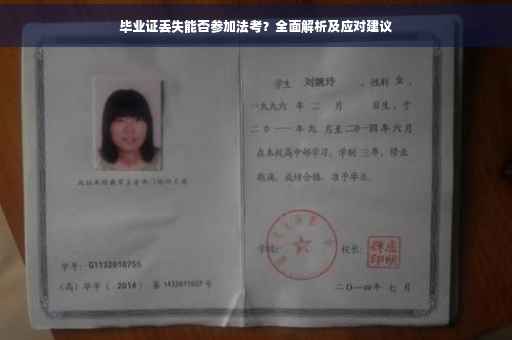 毕业证丢失能否参加法考？全面解析及应对建议
学生 刘婉玲 ，性别 女 ，
一九九六 年 二 月 日生，于
二〇一一年九 月至二〇一四年六月
在本校高中部学习，学制 三年，修业
期满，成绩合格，准予毕业。
学号：G1132010755
(高) 毕字（ 2014 ）第 1432011007 号
学校：
校长：
二〇一四年 七 月